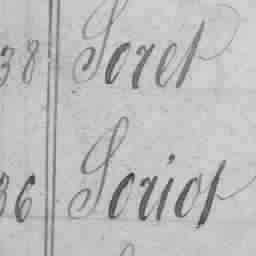 38 Soret
36 Soriot